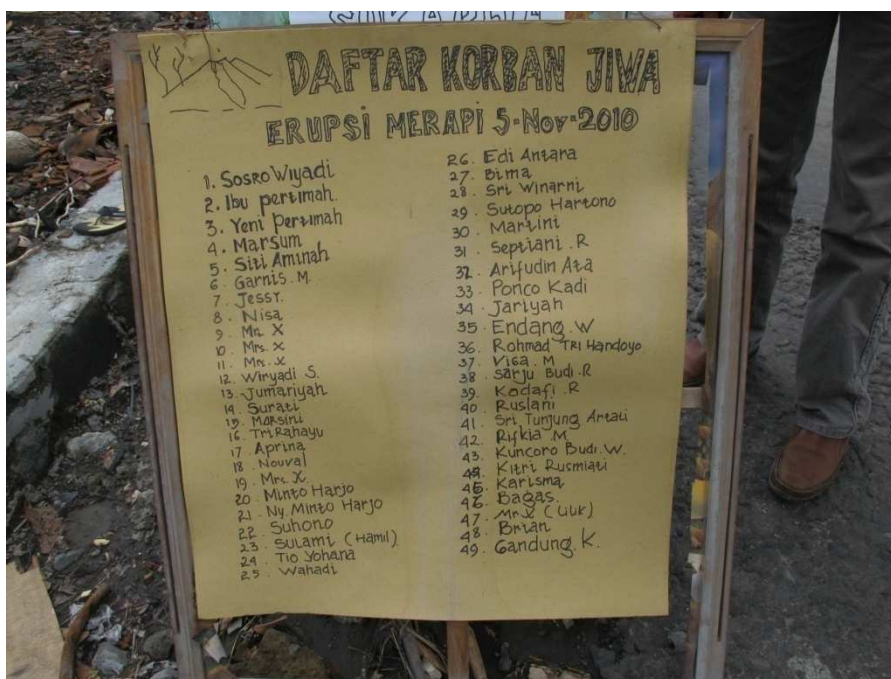 DAFTAR KORBAN JIWA
ERUPSI MERAPI 5-Nov-2010
1. Sosro Wiyadi
2. Ibu pertimah.
3. Yeni Pertimah
4. Marsum
5. Siti Aminah
6. Garnis. M.
7. Jessy.
8. Nisa
9. Mr. X
10. Mrs. X
11. Mrs. X
12. Wiryadi S.
13. Jumariyah
14. Surati
15. Marsini
16. Tri Rahayu
17. Aprina
18. Nouval
19. Mrs. X
20. Minto Harjo
21. Ny. Minto Harjo
22. Suhono
23. Sulami (Hamil)
24. Tio Yohana
25. Wahadi
26. Edi Antara
27. Bima
28. Sri Winarni
29. Sutopo Hartono
30. Martini
31. Septiani. R
32. Arifudin Ata
33. Ponco Kadi
34. Jariyah
35. Endang. W
36. Rohmad TRI Handoyo
37. Visa. M
38. Sarju Budi. R
39. Kadafi. R
40. Ruslani
41. Sri Tunjung Artati
42. Rifkia. M
43. Kuncoro Budi. W.
44. Kitri Rusmiati
45. Karisma
46. Bagas.
47. Mr X (UUK)
48. Brian
49. Gandung. K.